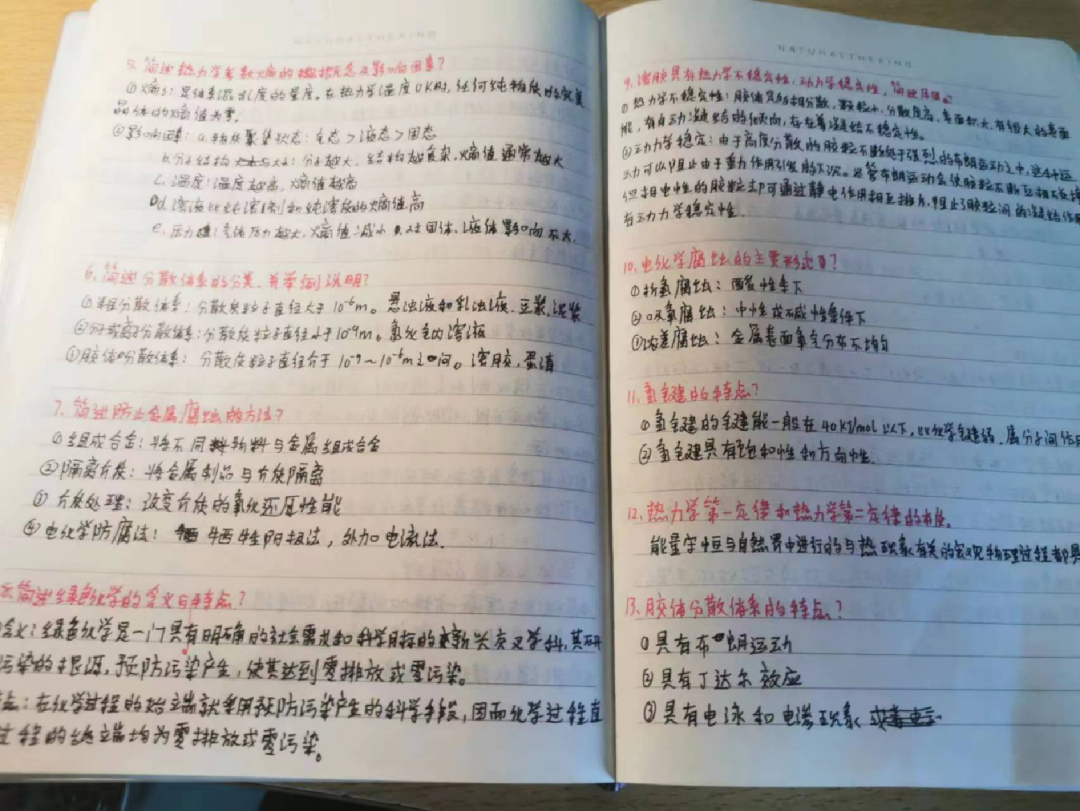 NATURALTHEKING
5. 简述热力学函数熵的概念及影响因素?
①熵S:是体系混乱度的量度。在热力学温度0K时,任何纯物质的完美
晶体的熵值为零。
②影响因素:a.物质聚集状态:气态>液态>固态
b.分子结构 分子越大、结构越复杂,熵值通常越大
c.温度:温度越高,熵值越高
d.溶液比纯溶剂和纯溶质的熵值高
e.压力 气体压力越大,熵值减小 对固体、液体影响不大.
6. 简述分散体系的分类、并举例说明?
①粗分散体系:分散质粒子直径大于10⁻⁶m。悬浊液和乳浊液.豆浆、泥浆
②分子或离子分散体系:分散质粒子直径小于10⁻⁹m。氯化钠溶液
③胶体分散体系:分散质粒子直径介于10⁻⁹~10⁻⁶m之间。溶胶,蛋清
7. 简述防止金属腐蚀的方法?
①组成合金:将不同物料与金属组成合金
②隔离介质:将金属制品与介质隔离
③介质处理:改变介质的氧化还原性能
④电化学防腐法:牺牲阳极法,外加电流法.
简述绿色化学的含义与特点?
含义:绿色化学是一门具有明确的社会需求和科学目标的新兴交叉学科,其研
污染的根源,预防污染产生,使其达到零排放或零污染。
点:在化学过程的始端就采用预防污染产生的科学手段,因而化学过程直
过程的终端均为零排放或零污染。
NATURALTHEKING
9. 溶胶具有热力学不稳定性,动力学稳定性,简述原因。
①热力学不稳定性:胶体是多相分散,颗粒小,分散度高、表面积大,有很大的表面
能,有自动凝结的倾向,存在着凝结不稳定性。
②动力学稳定:由于高度分散的胶粒不断处于强烈的布朗运动之中,这种运
动可以阻止由于重力作用引发的下沉。尽管布朗运动会使胶粒不断互相碰撞
但相电性的胶粒却可通过静电作用相互排斥,阻止了胶粒间的凝结作用
有动力学稳定性.
10. 电化学腐蚀的主要形式?
①析氢腐蚀:酸性条下
②吸氧腐蚀:中性或碱性条件下
③浓差腐蚀:金属表面氧气分布不均匀
11. 氢键的特点?
①氢键的键能一般在40KJ/mol以下,比化学键弱、属分子间作用
②氢键具有饱和性和方向性.
12. 热力学第一定律和热力学第二定律的本质。
能量守恒与自然界中进行的与热现象有关的宏观物理过程都具
13. 胶体分散体系的特点?
①具有布朗运动
②具有丁达尔效应
③具有电泳和电渗现象